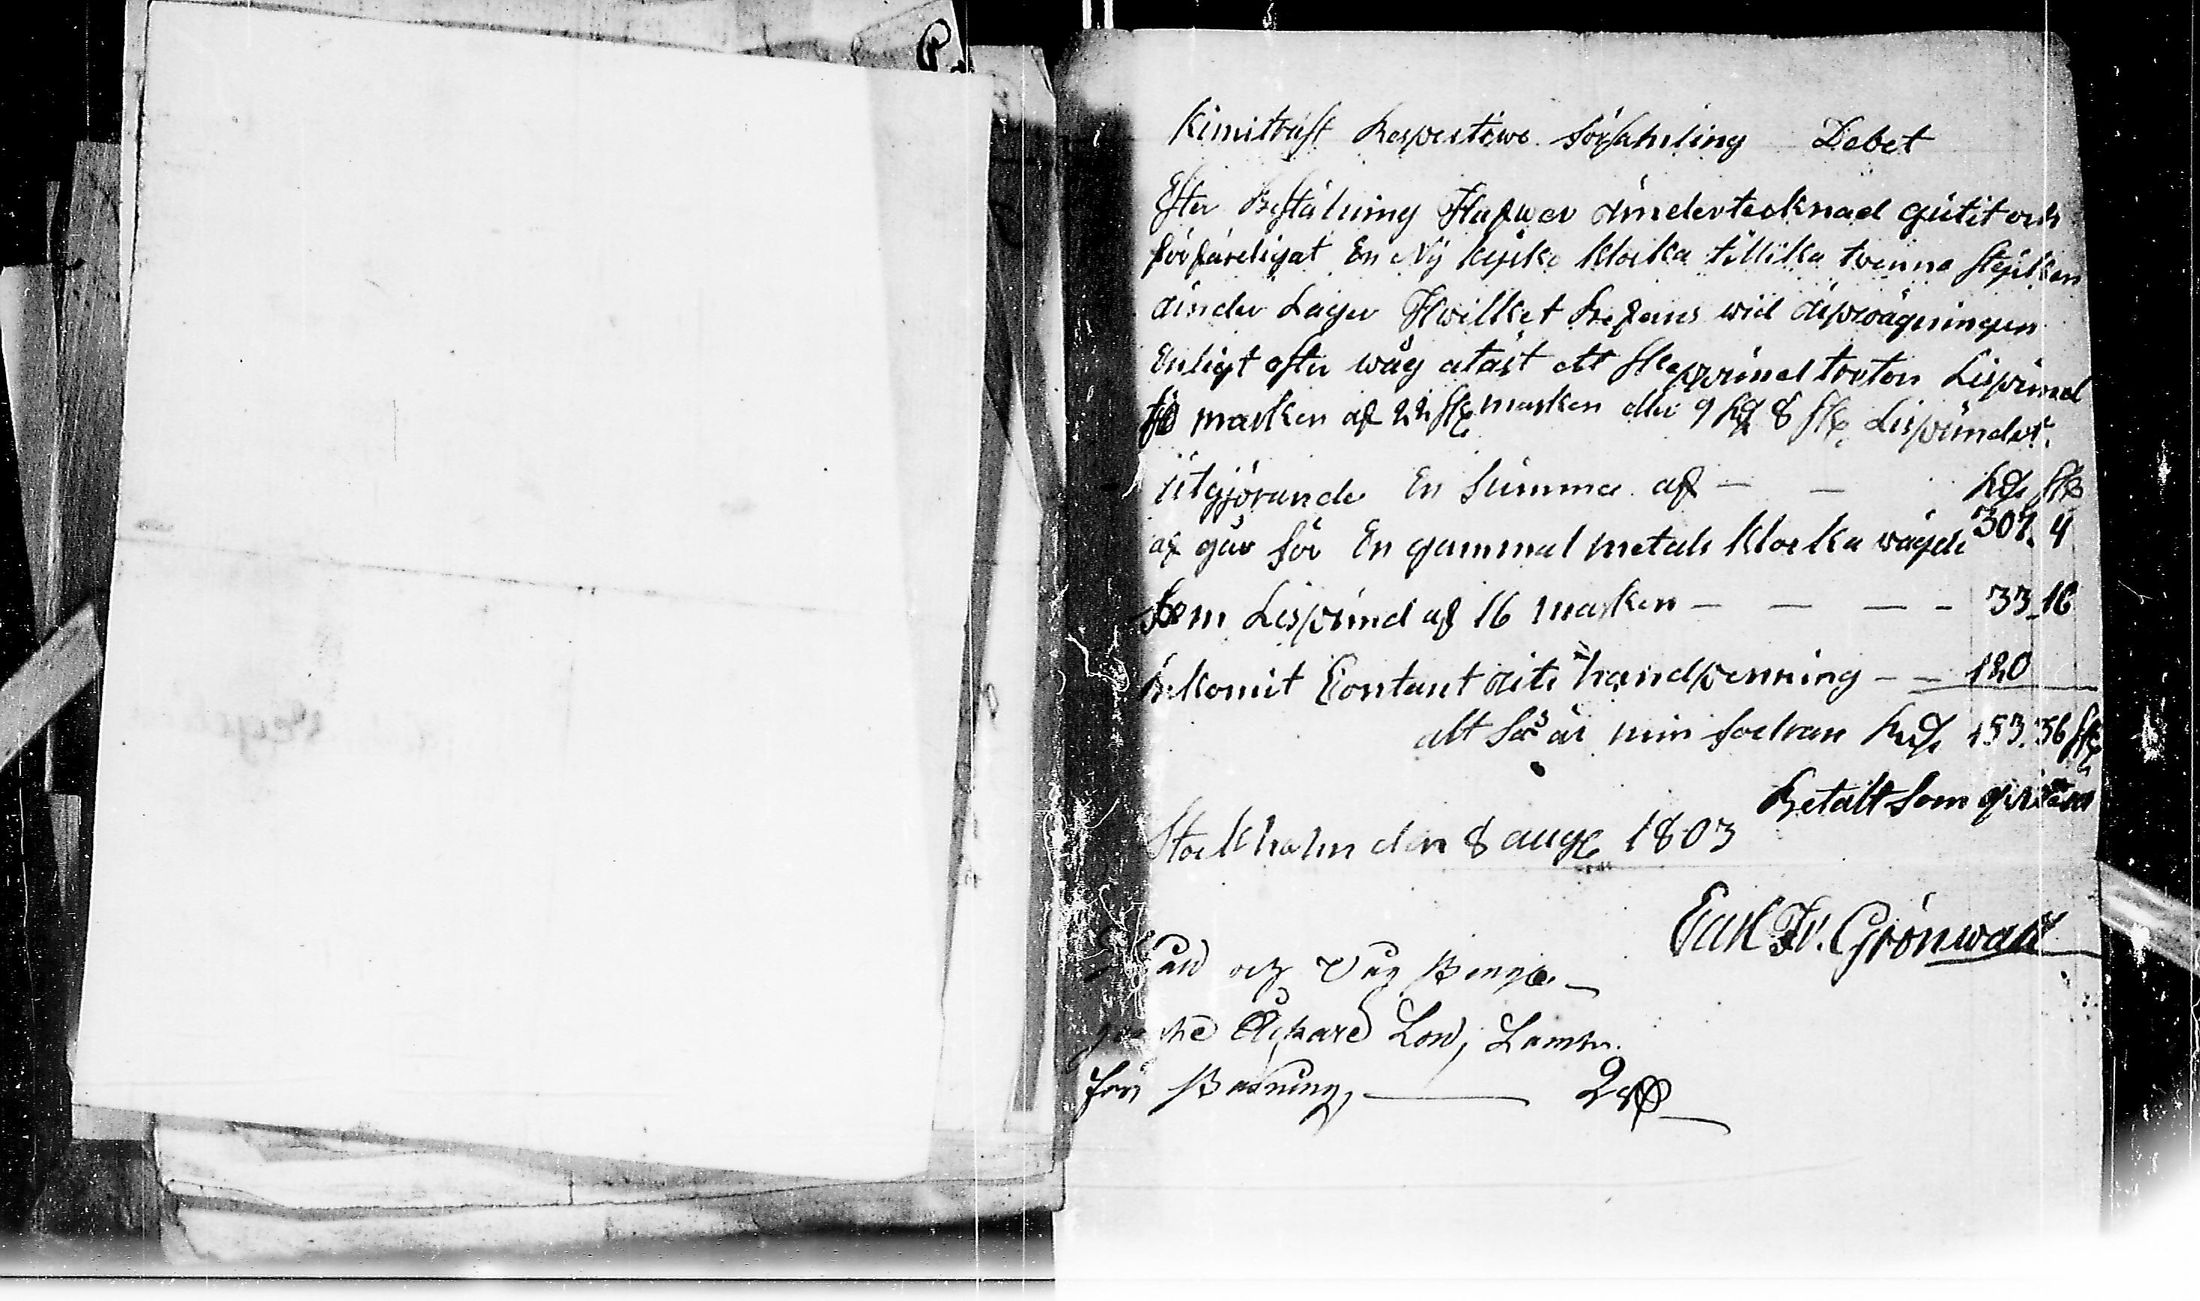 Kimitráſt Respective förſamling Debet
Efter Beſtälning Hafwer undertecknad gutit och
förfärdigat En Ny kyrko klocka tillika tvenne ſtyken
under Lager Hwilket befans wid upwägningen
Enligt efter wåg atäst ett ſkepund tretton Lispund
marken af 22 ſk marken eller 9 Rd 8 ſk Lispundet
utgjörande En Summa af — — Rd ſk
307. 4
af går för En gammal metals klocka vägde
fem Lispund af 16 marken — — — - 33.16
Bekomit Contant uti handpenning - - 120
alt så är min fodran Rd 153.36 ſk
Betalt som qvitteras
Stockholm den 8 aug 1803
Carl Fr. Grönwall
och Våg Penge. —
Åkare Lön, Samt
för Bärning, —— 2 Rd —